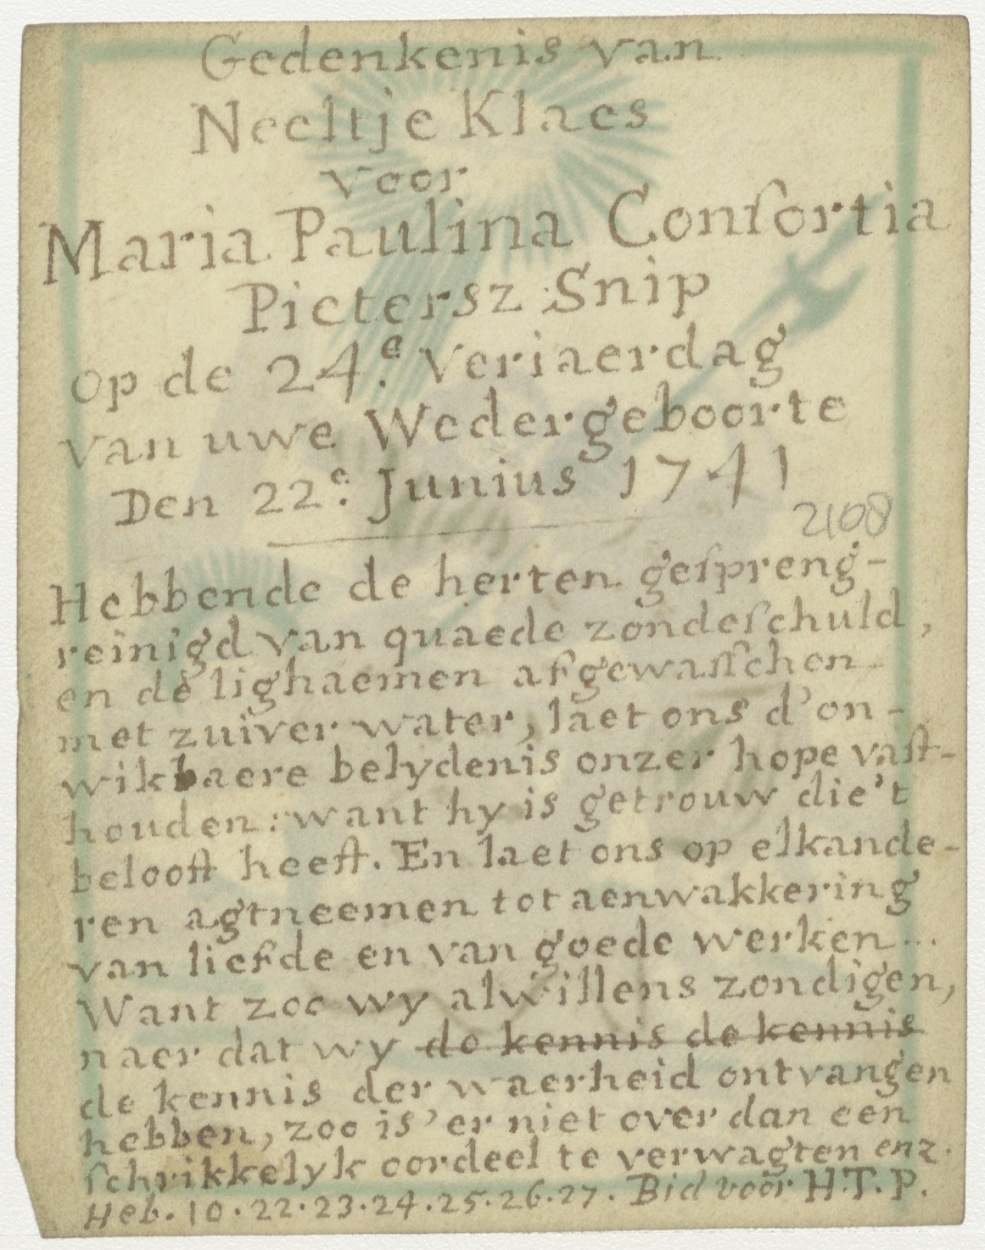 Gedenkenis van
Neeltje Klaes
voor
Maria Paulina Conſortia
Pietersz Snip
op de 24.e veriaerdag
van uwe Wedergeboorte
Den 22e. Junius 1741
2108
Hebbende de herten geſpreng-
reinigd van quaede zondeſchuld,
en de lighaemen afgewaſſchen
met zuiver water, laet ons d'on-
wikbaere belydenis onzer hope vaſt-
houden: want hy is getrouw die't
belooft heeft. En laet ons op elkande-
ren agtneemen tot aenwakkering
van liefde en van goede werken...
Want zoo wy alwillens zondigen,
naer dat wy de kennis de kennis
de kennis der waerheid ontvangen
hebben, zoo is'er niet over dan een
ſchrikkelyk oordeel te verwagten enz.
Heb. 10.22.23.24.25.26.27. Bid voor H.T.P.